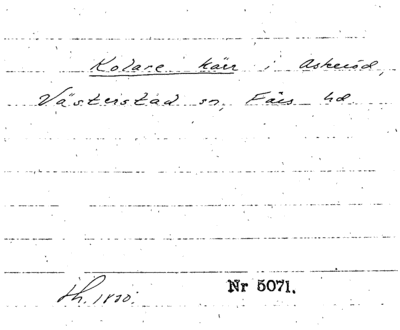 Kolare kärr i Askeröd,
Västerstad sn, Färs hd
Nr 5071.